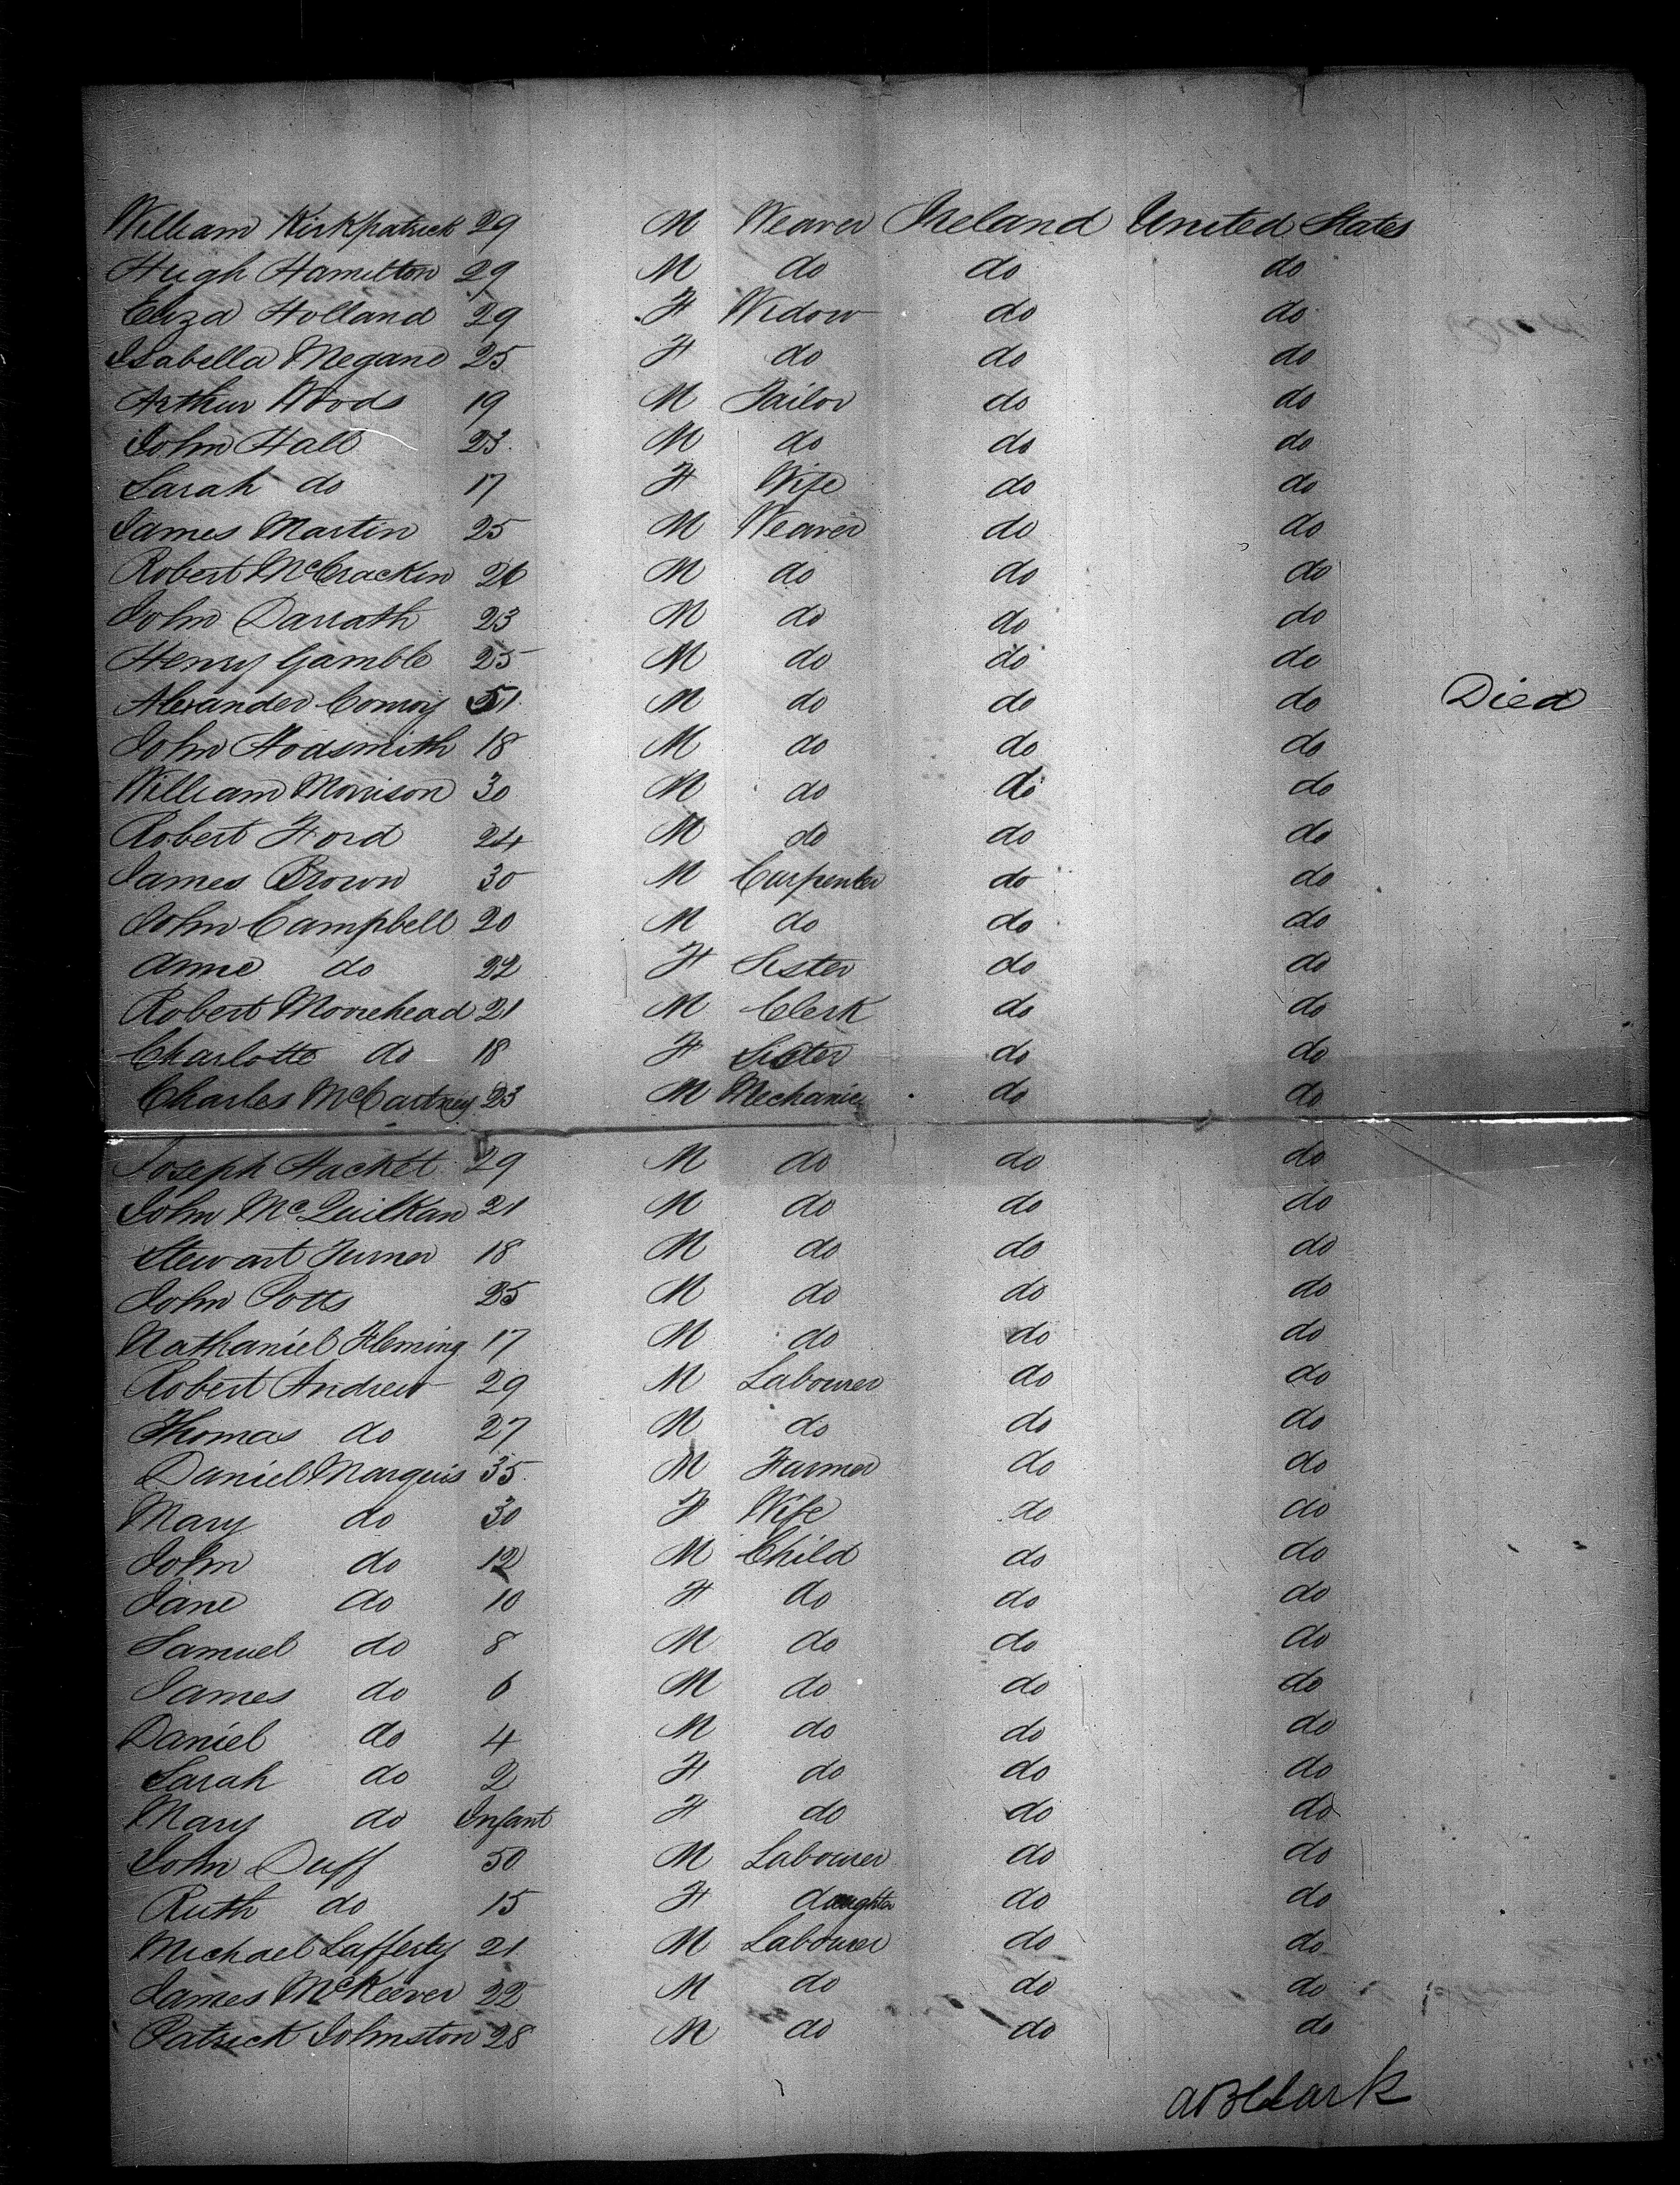 William Kirkpatrick 29 M Weaver Ireland United States
Hugh Hamilton 29 M do do do
Eliza Holland 29 F Widow do do
Isabella Megand 25 F do do do
Arthur Woods 19 M Tailor do do
John Hall 23 M do do do
Sarah do 17 F Wife do do
James Martin 25 M Weaver do do
Robert McCrackin 26 M do do do
John Darrath 23 M do do do
Henry Gamble 25 M do do do
Alexander Conroy 51 M do do do Died
John Hodsmith 18 M do do do
William Morrison 30 M do do do
Robert Ford 24 M do do do
James Brown 30 M Carpenter do do
John Campbell 20 M do do do
Anne do 22 F Sister do do
Robert Moorehead 21 M Clerk do do
Charlotte do 18 F Sister do do
Charles McCartney 23 M Mechanic do do
Joseph Hackett 29 M do do do
John McQuilkan 21 M do do do
Stewart Turner 18 M do do do
John Potts 25 M do do do
Nathaniel Fleming 17 M do do do
Robert Andrew 29 M Labourer do do
Thomas do 27 M do do do
Daniel Marquis 35 M Farmer do do
Mary do 30 F Wife do do
John do 12 M Child do do
Jane do 10 F do do do
Samuel do 8 M do do do
James do 6 M do do do
Daniel do 4 M do do do
Sarah do 2 F do do do
Mary do Infant F do do do
John Duff 50 M Labourer do do
Ruth do 15 F daughter do do
Michael Lafferty 21 M Labourer do do
James McKeever 22 M do do do
Patrick Johnston 28 M do do do
A B Clark